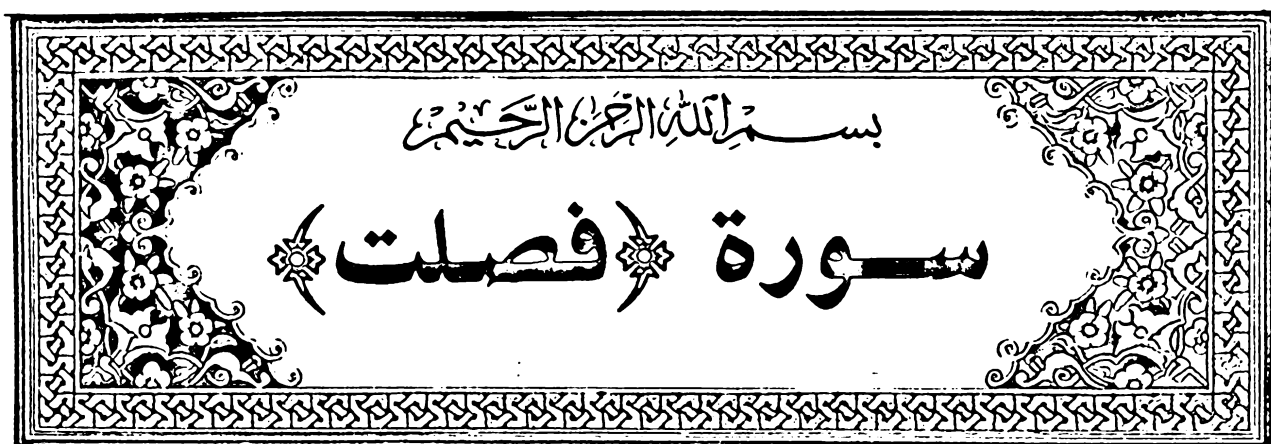 بسم الله الرحمن الرحيم
سورة ﴿فصلت﴾